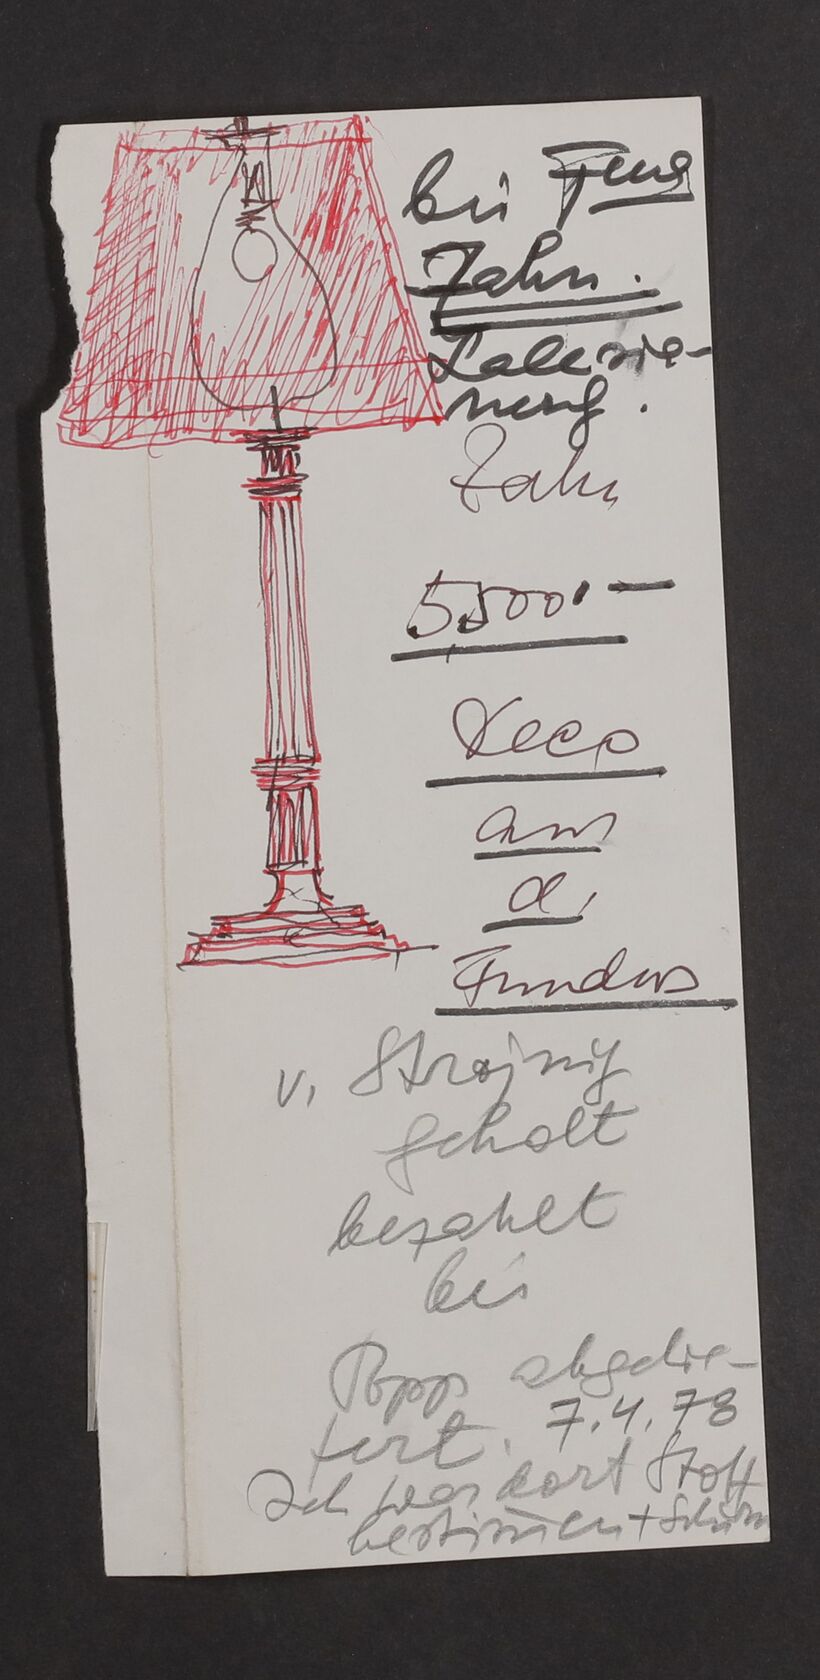 bei Frau
Zahn.
Galerie-
Zahn
5500.—
aus
d.
Fundus
v.
geholt
bezahlt
bei
Popp abgelie-
fert. 7.4.78
Ich war dort Stoff
bestimmen + Schirm